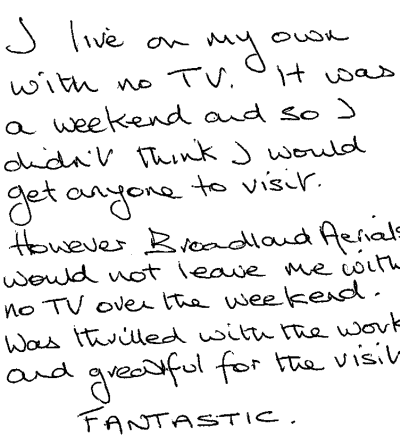 I live on my own
with no TV. It was
a weekend and so I
didn't think I would
get anyone to visit.
However Broadland Aerials
would not leave me with
no TV over the weekend.
Was thrilled with the work
and greatful for the visit
FANTASTIC.